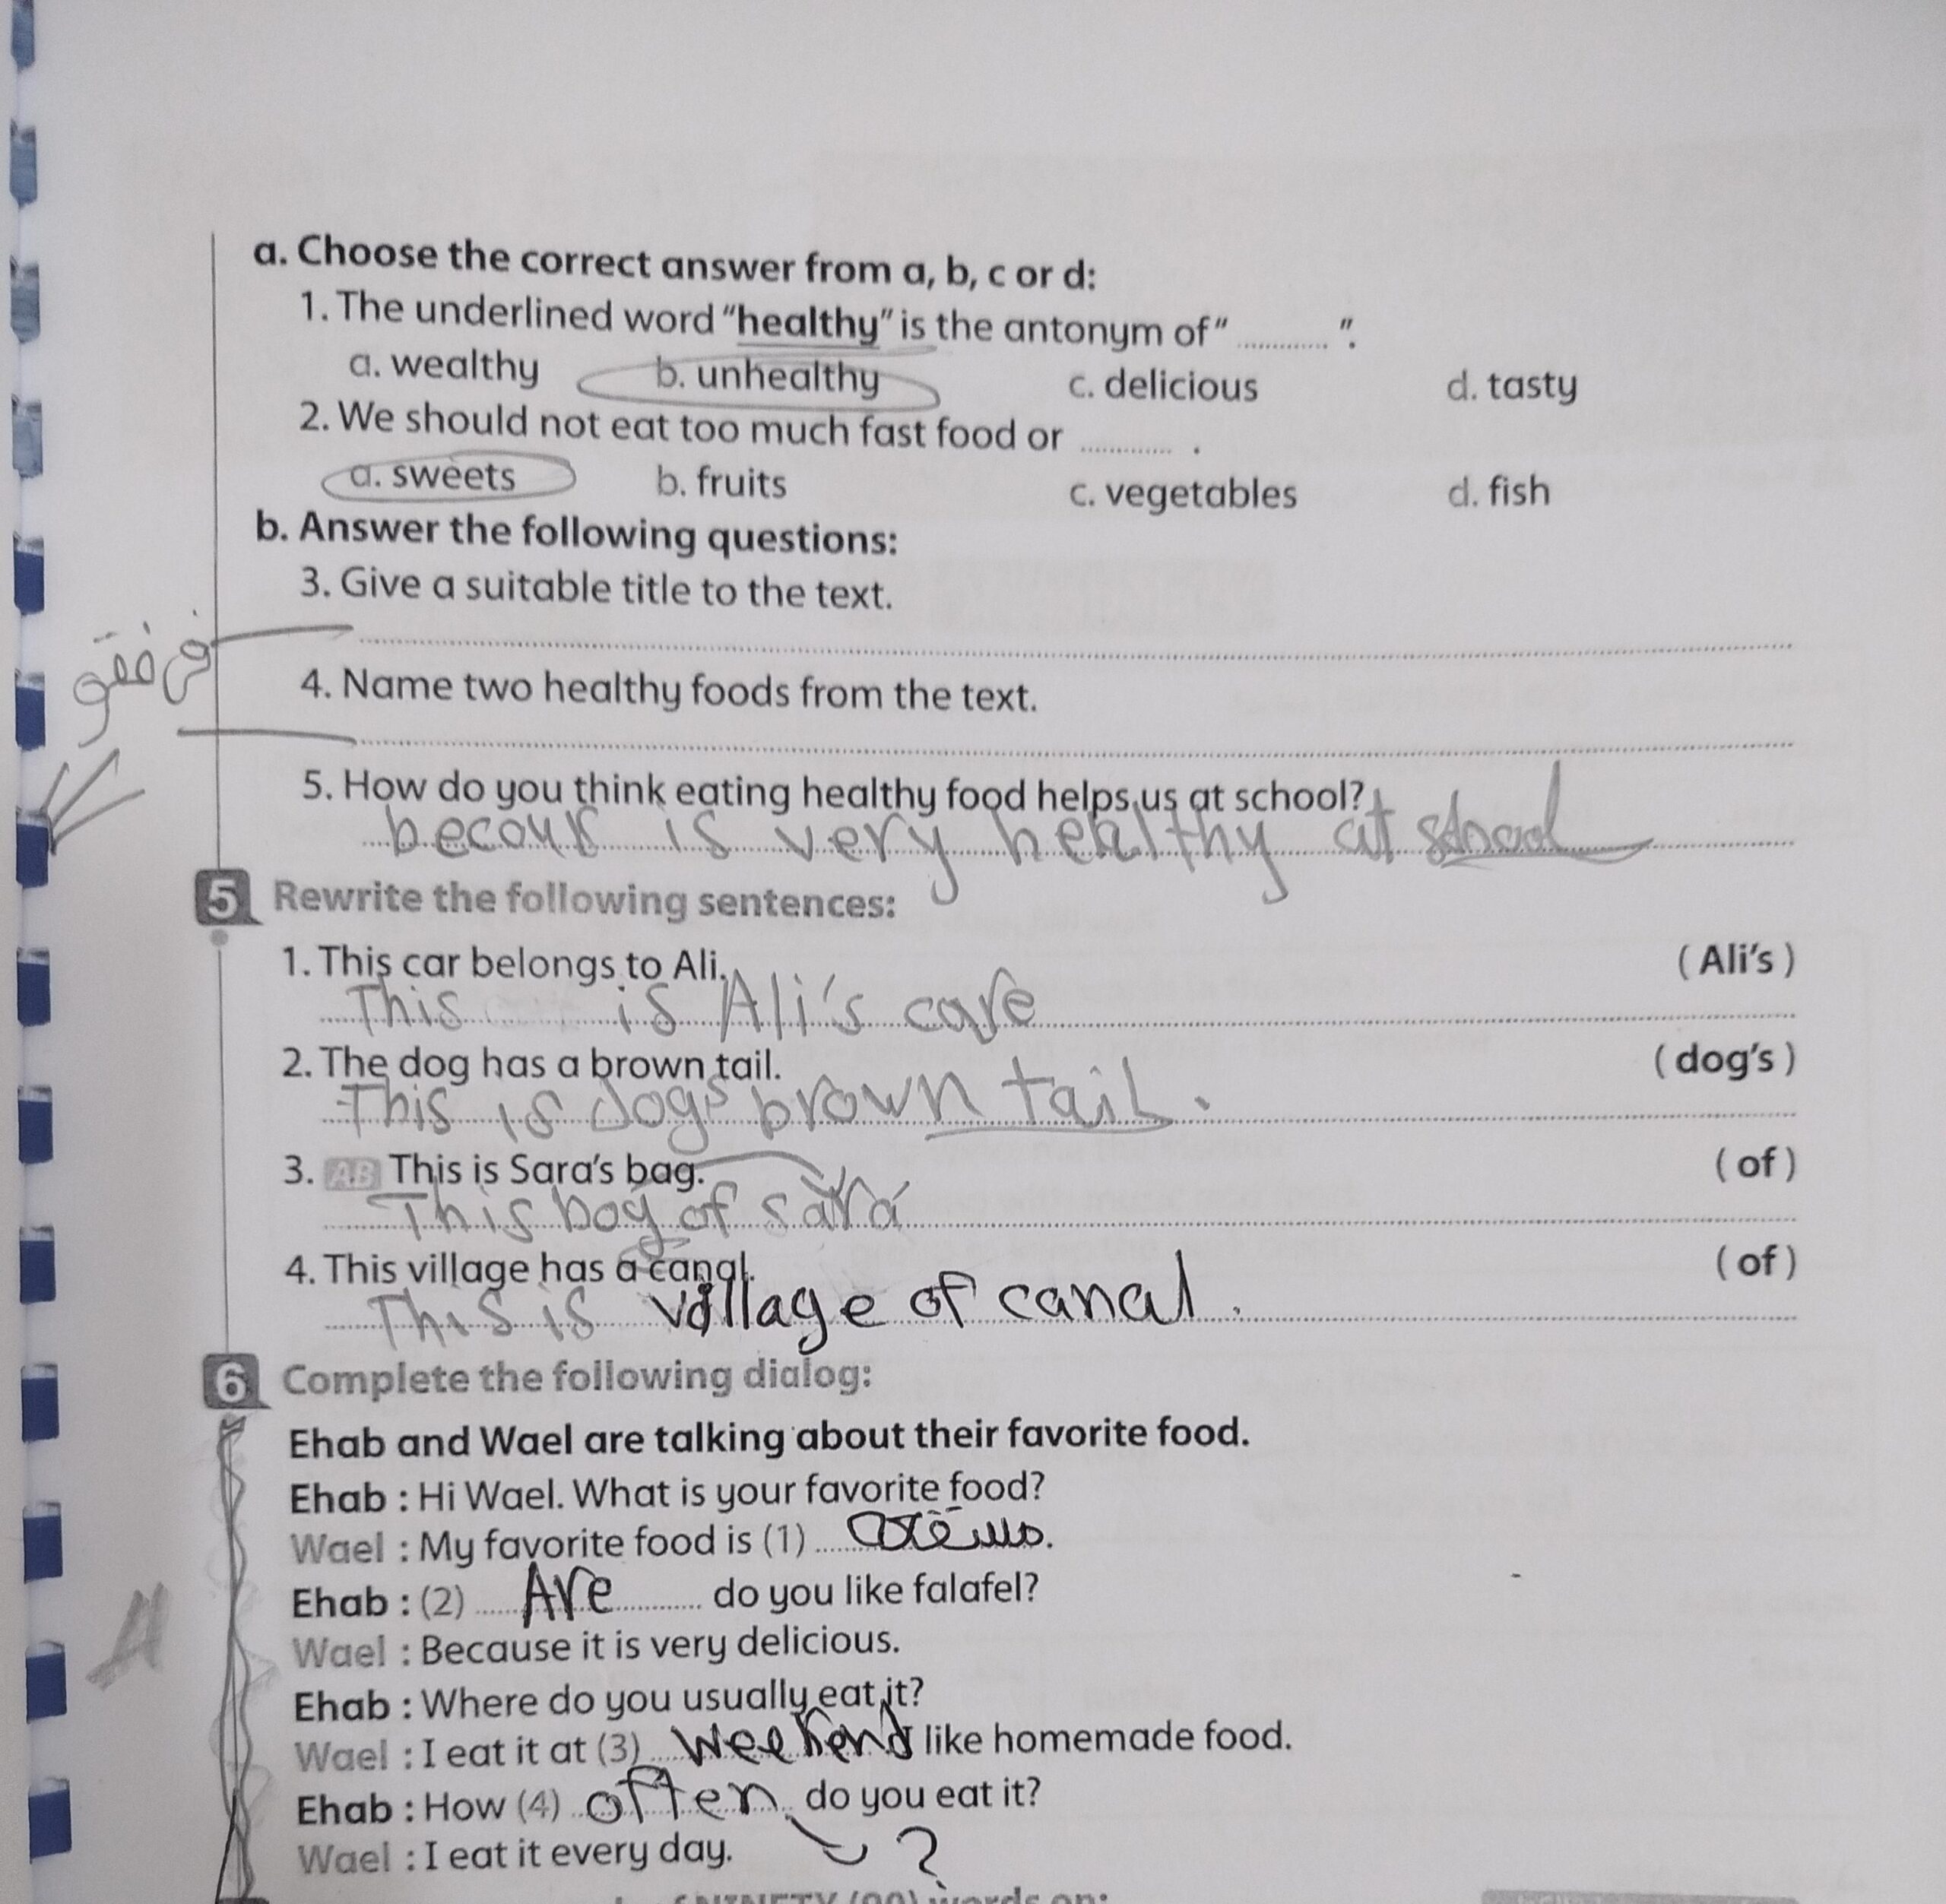 a. Choose the correct answer from a, b, c or d:
1. The underlined word “healthy” is the antonym of “ ............ ”.
a. wealthy b. unhealthy c. delicious d. tasty
2. We should not eat too much fast food or ............ .
a. sweets b. fruits c. vegetables d. fish
b. Answer the following questions:
3. Give a suitable title to the text.
4. Name two healthy foods from the text.
5. How do you think eating healthy food helps us at school?
is very healthy at school
5 Rewrite the following sentences:
1. This car belongs to Ali. ( Ali’s )
This is Ali's care
2. The dog has a brown tail. ( dog’s )
This is dogs brown tail.
3. AB This is Sara’s bag. ( of )
This bag of sara
4. This village has a canal. ( of )
This is village of canal.
6 Complete the following dialog:
Ehab and Wael are talking about their favorite food.
Ehab : Hi Wael. What is your favorite food?
Wael : My favorite food is (1) .
Ehab : (2) Are do you like falafel?
Wael : Because it is very delicious.
Ehab : Where do you usually eat it?
Wael : I eat it at (3) weekend I like homemade food.
Ehab : How (4) often do you eat it?
Wael : I eat it every day. ?